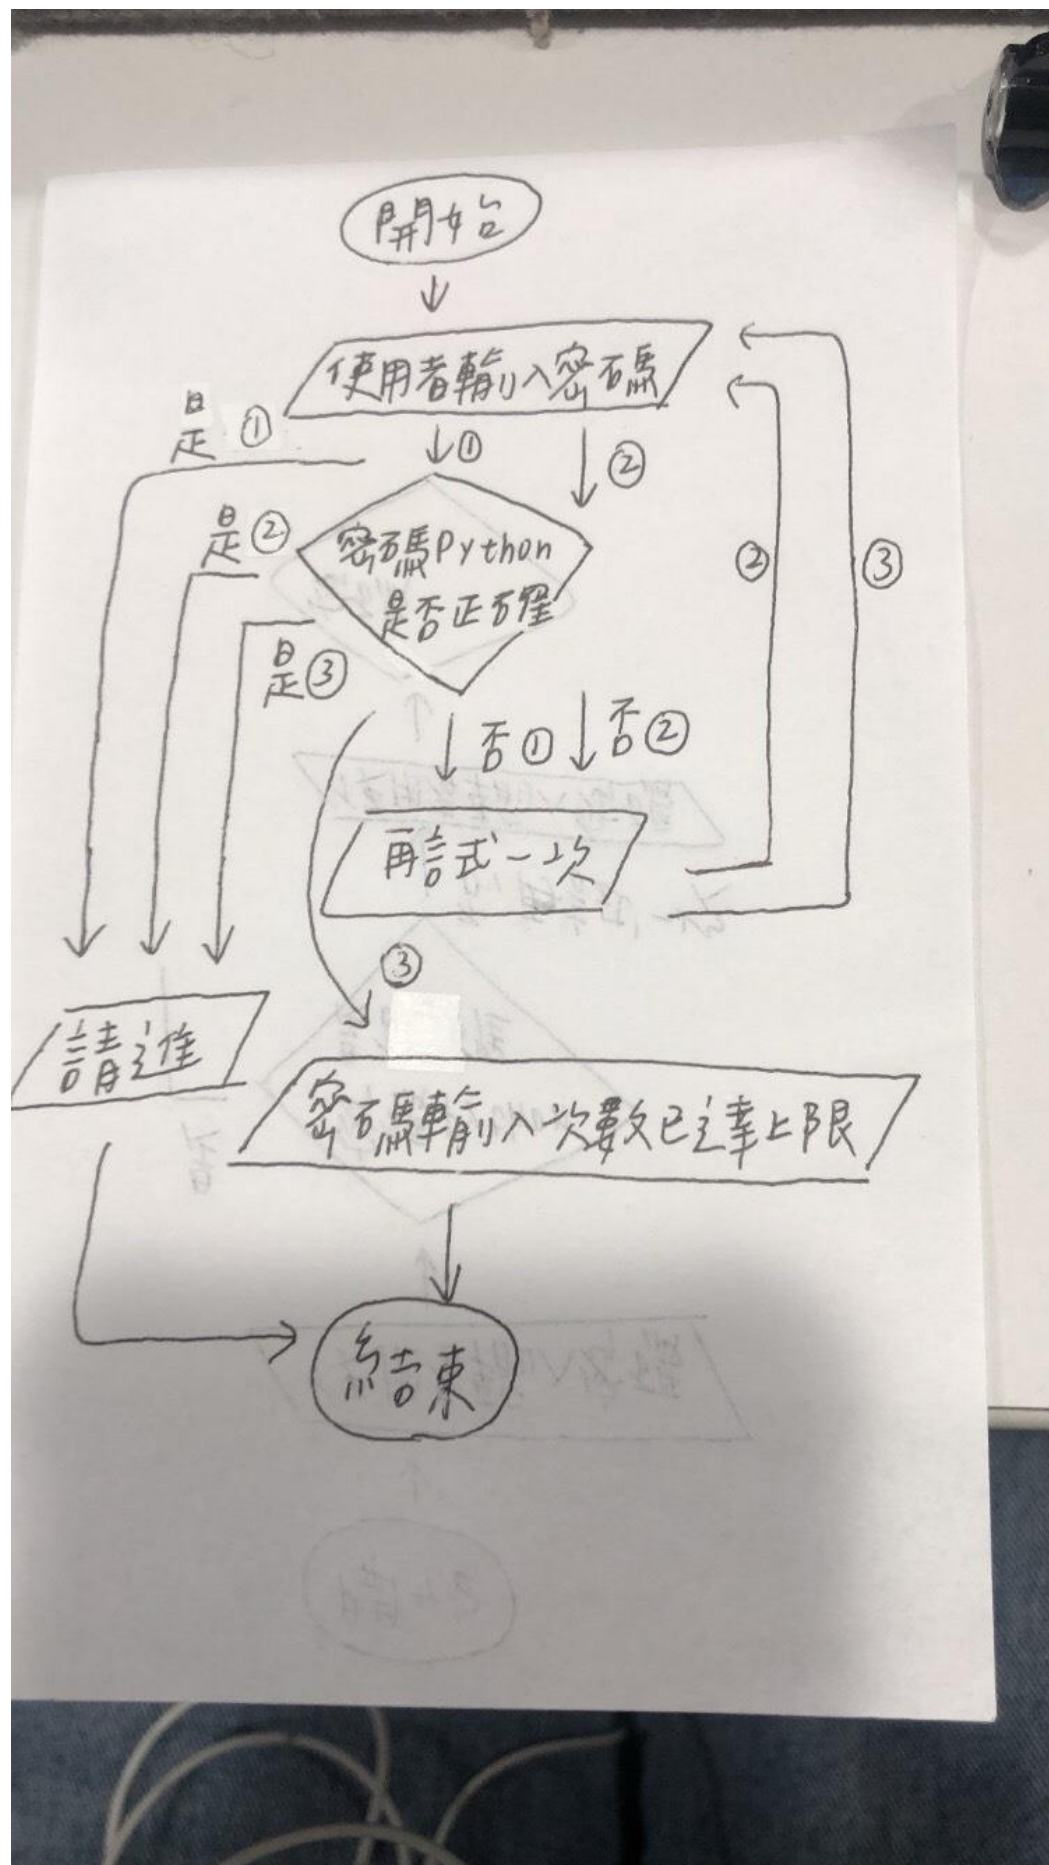 開始
使用者輸入密碼
是①
①
②
是②
密碼Python
是否正確
②
③
是③
否①
否②
再試一次
③
請進
密碼輸入次數已達上限
結束